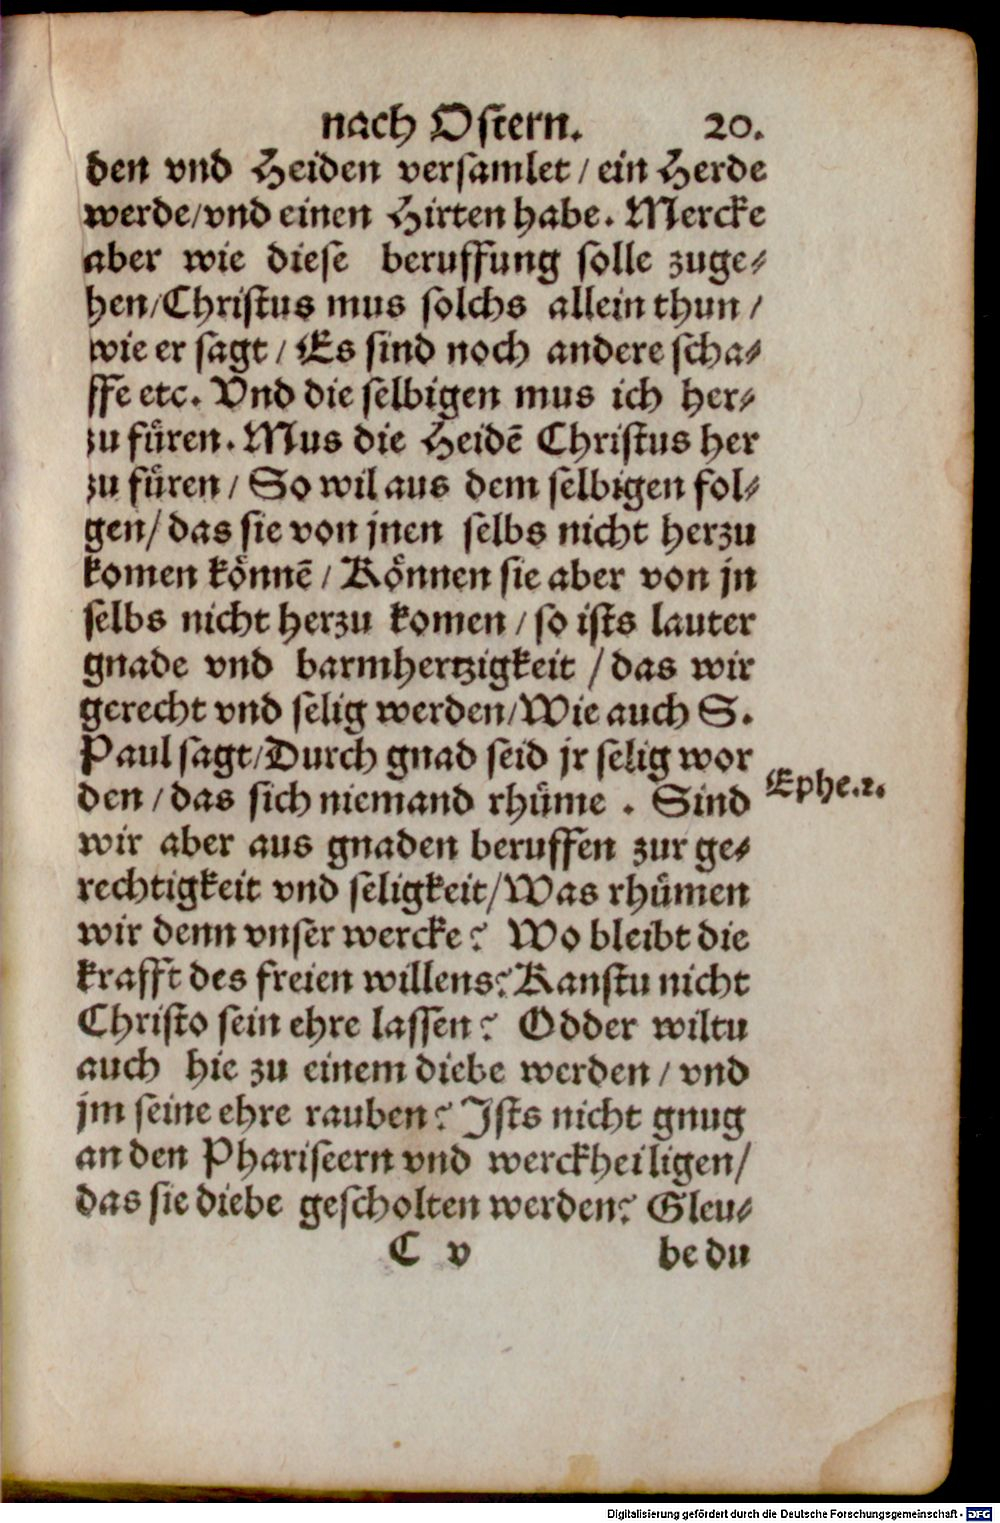 nach Ostern. 20.
den vnd Heiden versamlet / ein Herde
werde/vnd einen Hirten habe. Mercke
aber wie diese beruffung solle zuge⸗
hen/Christus mus solchs allein thun /
wie er sagt / Es sind noch andere scha⸗
ffe etc. Vnd die selbigen mus ich her⸗
zu fuͤren. Mus die Heidē Christus her
zu fuͤren / So wil aus dem selbigen fol⸗
gen/ das sie von jnen selbs nicht herzu
komen koͤnnē / Koͤnnen sie aber von jn
selbs nicht herzu komen / so ists lauter
gnade vnd barmhertzigkeit / das wir
gerecht vnd selig werden/Wie auch S.
Paul sagt/Durch gnad seid jr selig wor
den / das sich niemand rhuͤme . Sind
Ephe.2.
wir aber aus gnaden beruffen zur ge⸗
rechtigkeit vnd seligkeit/Was rhuͤmen
wir denn vnser wercke? Wo bleibt die
krafft des freien willens? Kanstu nicht
Christo sein ehre lassen? Odder wiltu
auch hie zu einem diebe werden / vnd
jm seine ehre rauben? Ists nicht gnug
an den Phariseern vnd werckheiligen/
das sie diebe gescholten werden? Gleu⸗
C v be du
Digitalisierung gefördert durch die Deutsche Forschungsgemeinschaft - DFG